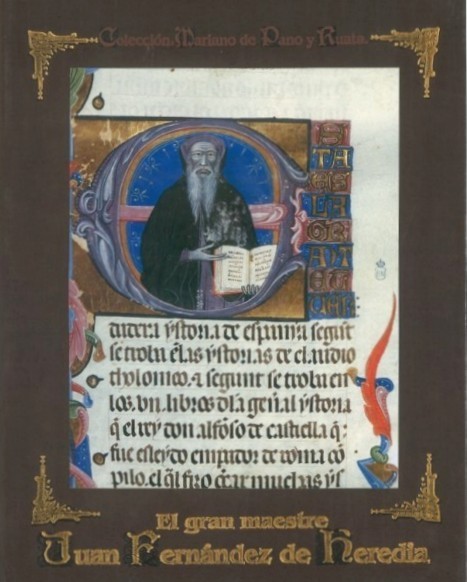 Colección. Mariano de Pano y Ruata.
STA
ES
LA
GRANT
ET
UER
dadera ystoria de espanya segunt
se troba en las ystorias de claudio
tholomeo. & segunt se troba en
los. vii. libros dla gñal ystoria
q̃ el rey don alfõso de castella q̃
fue esleydo emperador de roma cõ
pilo. el q̃l fizo
muchas
El gran maestre
Juan Fernández de Heredia